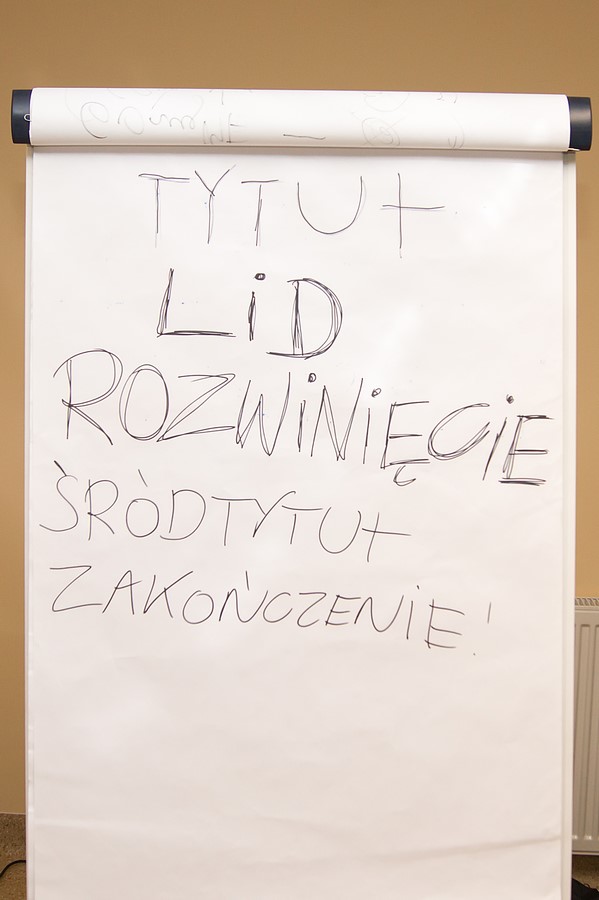 TYTUŁ
LiD
ROZWiNiĘCiE
ŚRÓDTYTUŁ
ZAKOŃCZENiE!